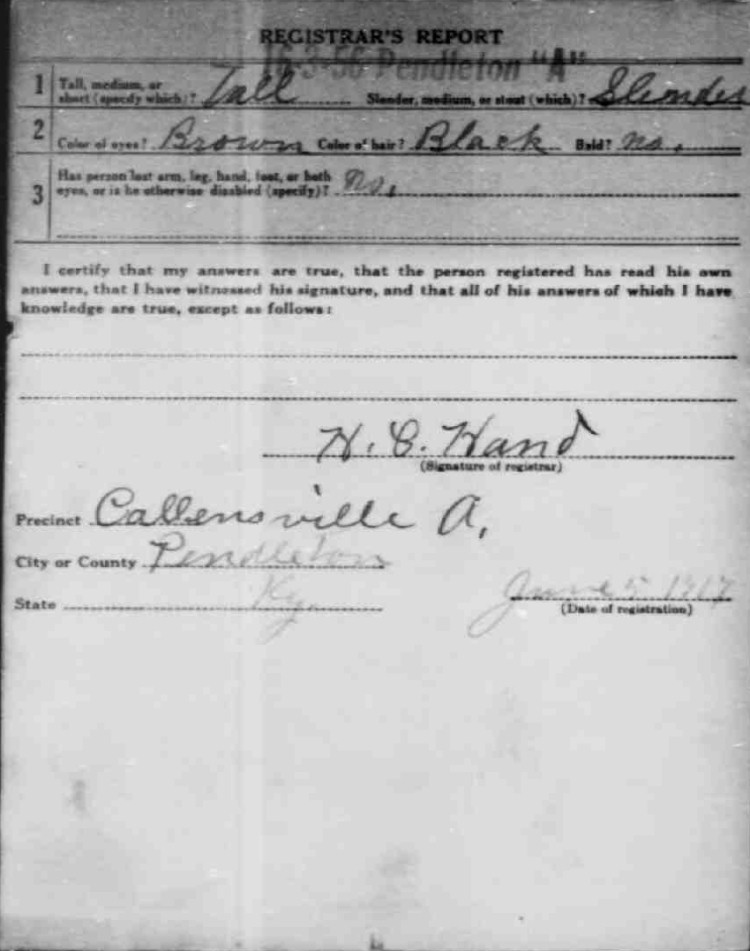 REGISTRAR'S REPORT
16-3-56 Pendleton "A"
1 Tall, medium, or short (specify which)? Tall Slender, medium, or stout (which)? Slender
2 Color of eyes? Brown Color of hair? Black Bald? no.
3 Has person lost arm, leg, hand, foot, or both
eyes, or is he otherwise disabled (specify)? No.
I certify that my answers are true, that the person registered has read his own
answers, that I have witnessed his signature, and that all of his answers of which I have
knowledge are true, except as follows:
H. C. Hand
(Signature of registrar)
Precinct Callensville A,
City or County Pendleton
State Ky. June 5 1917
(Date of registration)